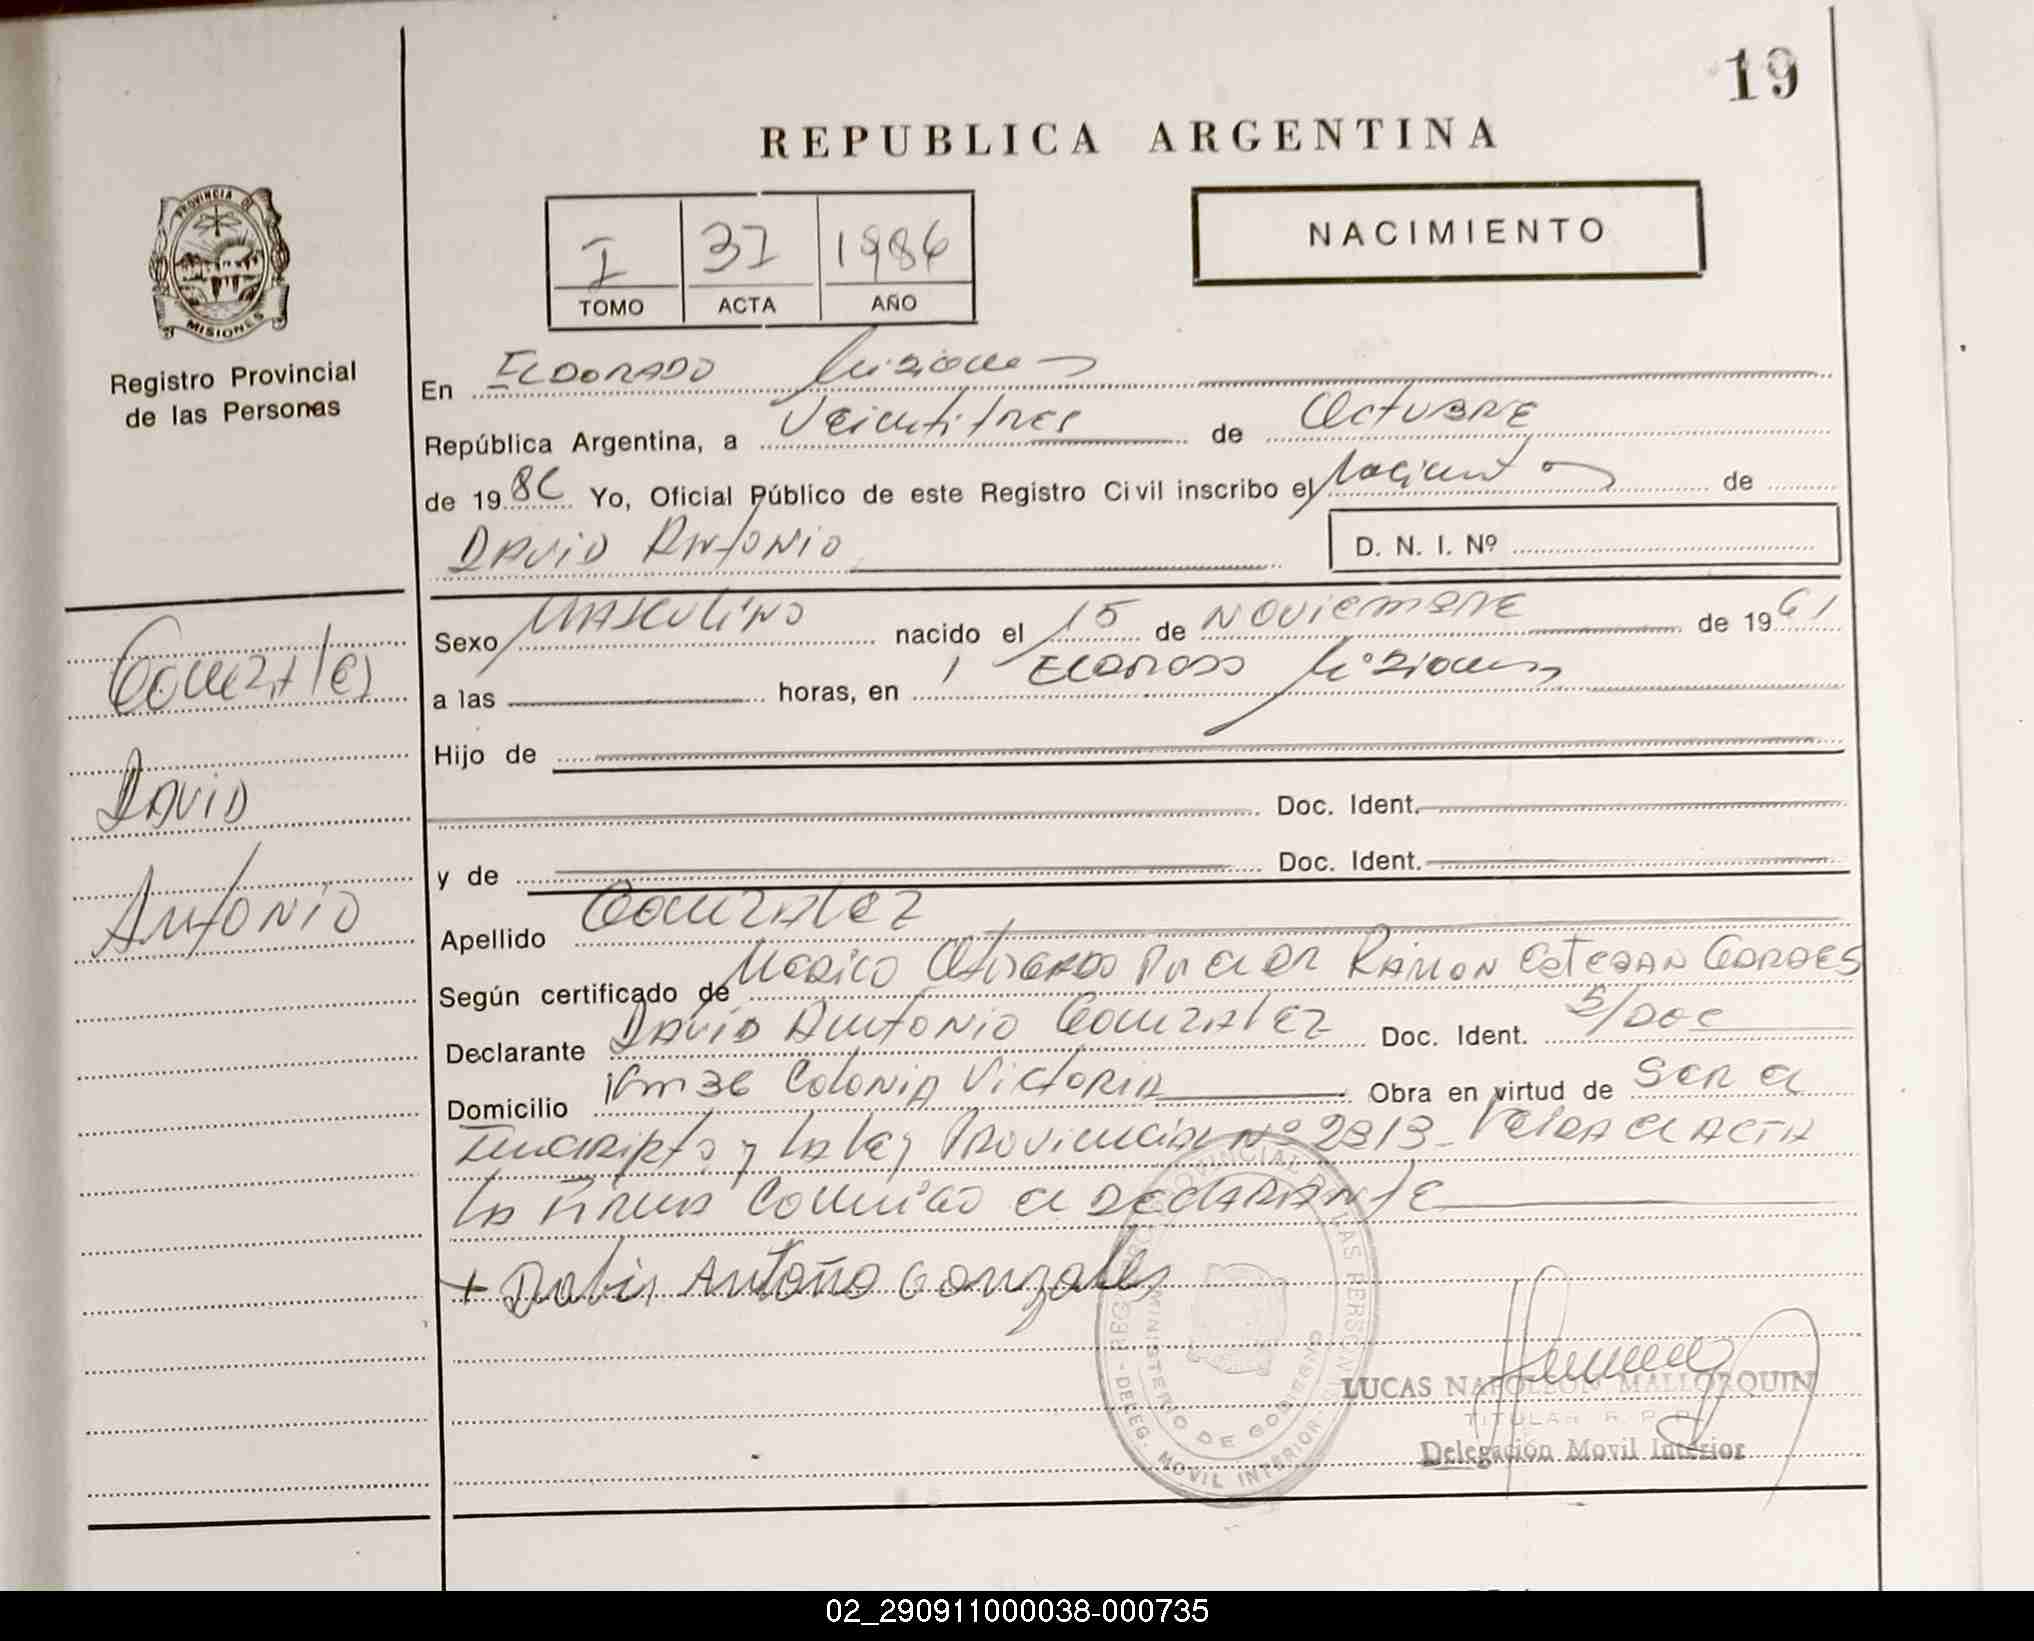 19
REPUBLICA ARGENTINA
NACIMIENTO
I 37 1986
TOMO ACTA AÑO
PROVINCIA DE
MISIONES
Registro Provincial
de las Personas
En ELDORADO Misiones
República Argentina, a Veintitres de OctuBRE
de 1986 Yo, Oficial Público de este Registro Civil inscribo el Nacimiento de
DAViD ANtoNio
D. N. I. Nº
Sexo MASCULiNO nacido el 15 de NOViEMBRE de 1961
a las horas, en ELDORADO Misiones
Hijo de
Doc. Ident.
y de Doc. Ident.
Gonzalez
DAViD
ANtONiO
Apellido Gonzalez
Según certificado de Medico Otorgado Por el DR RAMON EsteBAN
Declarante DAViD ANtoNio Gonzalez Doc. Ident. S/DOC
Domicilio Km 36 ColoNiA VictoRiA Obra en virtud de SER el
Inscripto y la ley PRoviNciAl Nº 2813 - el ACTA
la FiRMA coNmigo el DEClARANTE
+ Dabis Antoño Gonzales
REGISTRO PROVINCIAL DE LAS PERSONAS
MINISTERIO DE GOBIERNO
DELEG. MOVIL INTERIOR
LUCAS NAPOLEON MALLORQUIN
TITULAR R. P. P.
Delegación Movil Interior
02_290911000038-000735